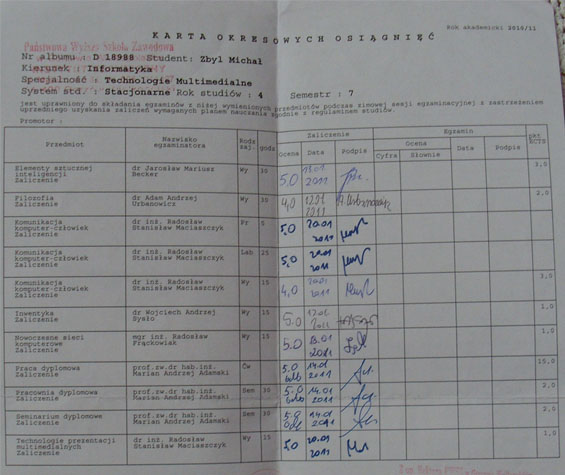 Rok akademicki 2010/11
KARTA OKRESOWYCH OSIĄGNIĘĆ
Państwowa Wyższa Szkoła Zawodowa
Nr albumu : D 18988 Student: Zbyl Michał
Kierunek : Informatyka
Specjalność : Technologie Multimedialne
System std. : Stacjonarne Rok studiów : 4 Semestr : 7
jest uprawniony do składania egzaminów z niżej wymienionych przedmiotów podczas zimowej sesji egzaminacyjnej z zastrzeżeniem
uprzedniego uzyskania zaliczeń wymaganych planem nauczania zgodnie z regulaminem studiów.
Promotor :
Przedmiot Nazwisko egzaminatora Rodz zaj. godz Zaliczenie Egzamin pkt ECTS
Ocena Data Podpis Ocena Data Podpis
Cyfra Słownie
Elementy sztucznej inteligencji Zaliczenie dr Jarosław Mariusz Becker Wy 30 5,0 2011 3,0
Filozofia Zaliczenie dr Adam Andrzej Urbanowicz Wy 30 4,0 12.01 2011 2,0
Komunikacja komputer-człowiek Zaliczenie dr inż. Radosław Stanisław Maciaszczyk Pr 5,0 20.01 2011
Komunikacja komputer-człowiek Zaliczenie dr inż. Radosław Stanisław Maciaszczyk Lab 25 5,0 20.01 2011
Komunikacja komputer-człowiek Zaliczenie dr inż. Radosław Stanisław Maciaszczyk Wy 15 4,0 20.01 2011 3,0
Inwentyka Zaliczenie dr Wojciech Andrzej Sysło Wy 15 5.0 2011 1,0
Nowoczesne sieci komputerowe Zaliczenie mgr inż. Radosław Frąckowiak Wy 15 5.0 2011 1,0
Praca dyplomowa Zaliczenie prof.zw.dr hab.inż. Marian Andrzej Adamski Ćw 5.0 14.01 2011 15,0
Pracownia dyplomowa Zaliczenie prof.zw.dr hab.inż. Marian Andrzej Adamski Sem 30 5.0 14.01 2011 2,0
Seminarium dyplomowe Zaliczenie prof.zw.dr hab.inż. Marian Andrzej Adamski Sem 30 5.0 14.01 2011 2,0
Technologie prezentacji multimedialnych Zaliczenie dr inż. Radosław Stanisław Maciaszczyk Wy 15 5,0 20.01 2011 1,0